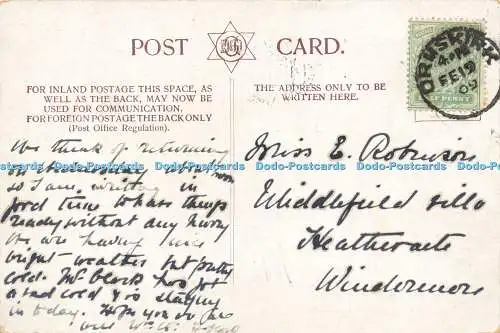 POST CARD.
FOR INLAND POSTAGE THIS SPACE, AS
WELL AS THE BACK, MAY NOW BE
USED FOR COMMUNICATION.
FOR FOREIGN POSTAGE THE BACK ONLY
(Post Office Regulation).
THE ADDRESS ONLY TO BE
WRITTEN HERE.
4
FE 19
09
PENNY
We think of returning
so I am writing in
good time to have things
ready without any hurry
We are having
bright weather but pretty
cold. Mr has got
a bad cold & is staying
in today. Hope you
Miss E. Robinson
Middlefield villa
Heathwaite
Windermere
Dodo-Postcards Dodo-Postcards Dodo-Postcards Dodo-Postcards Dodo-Postcards